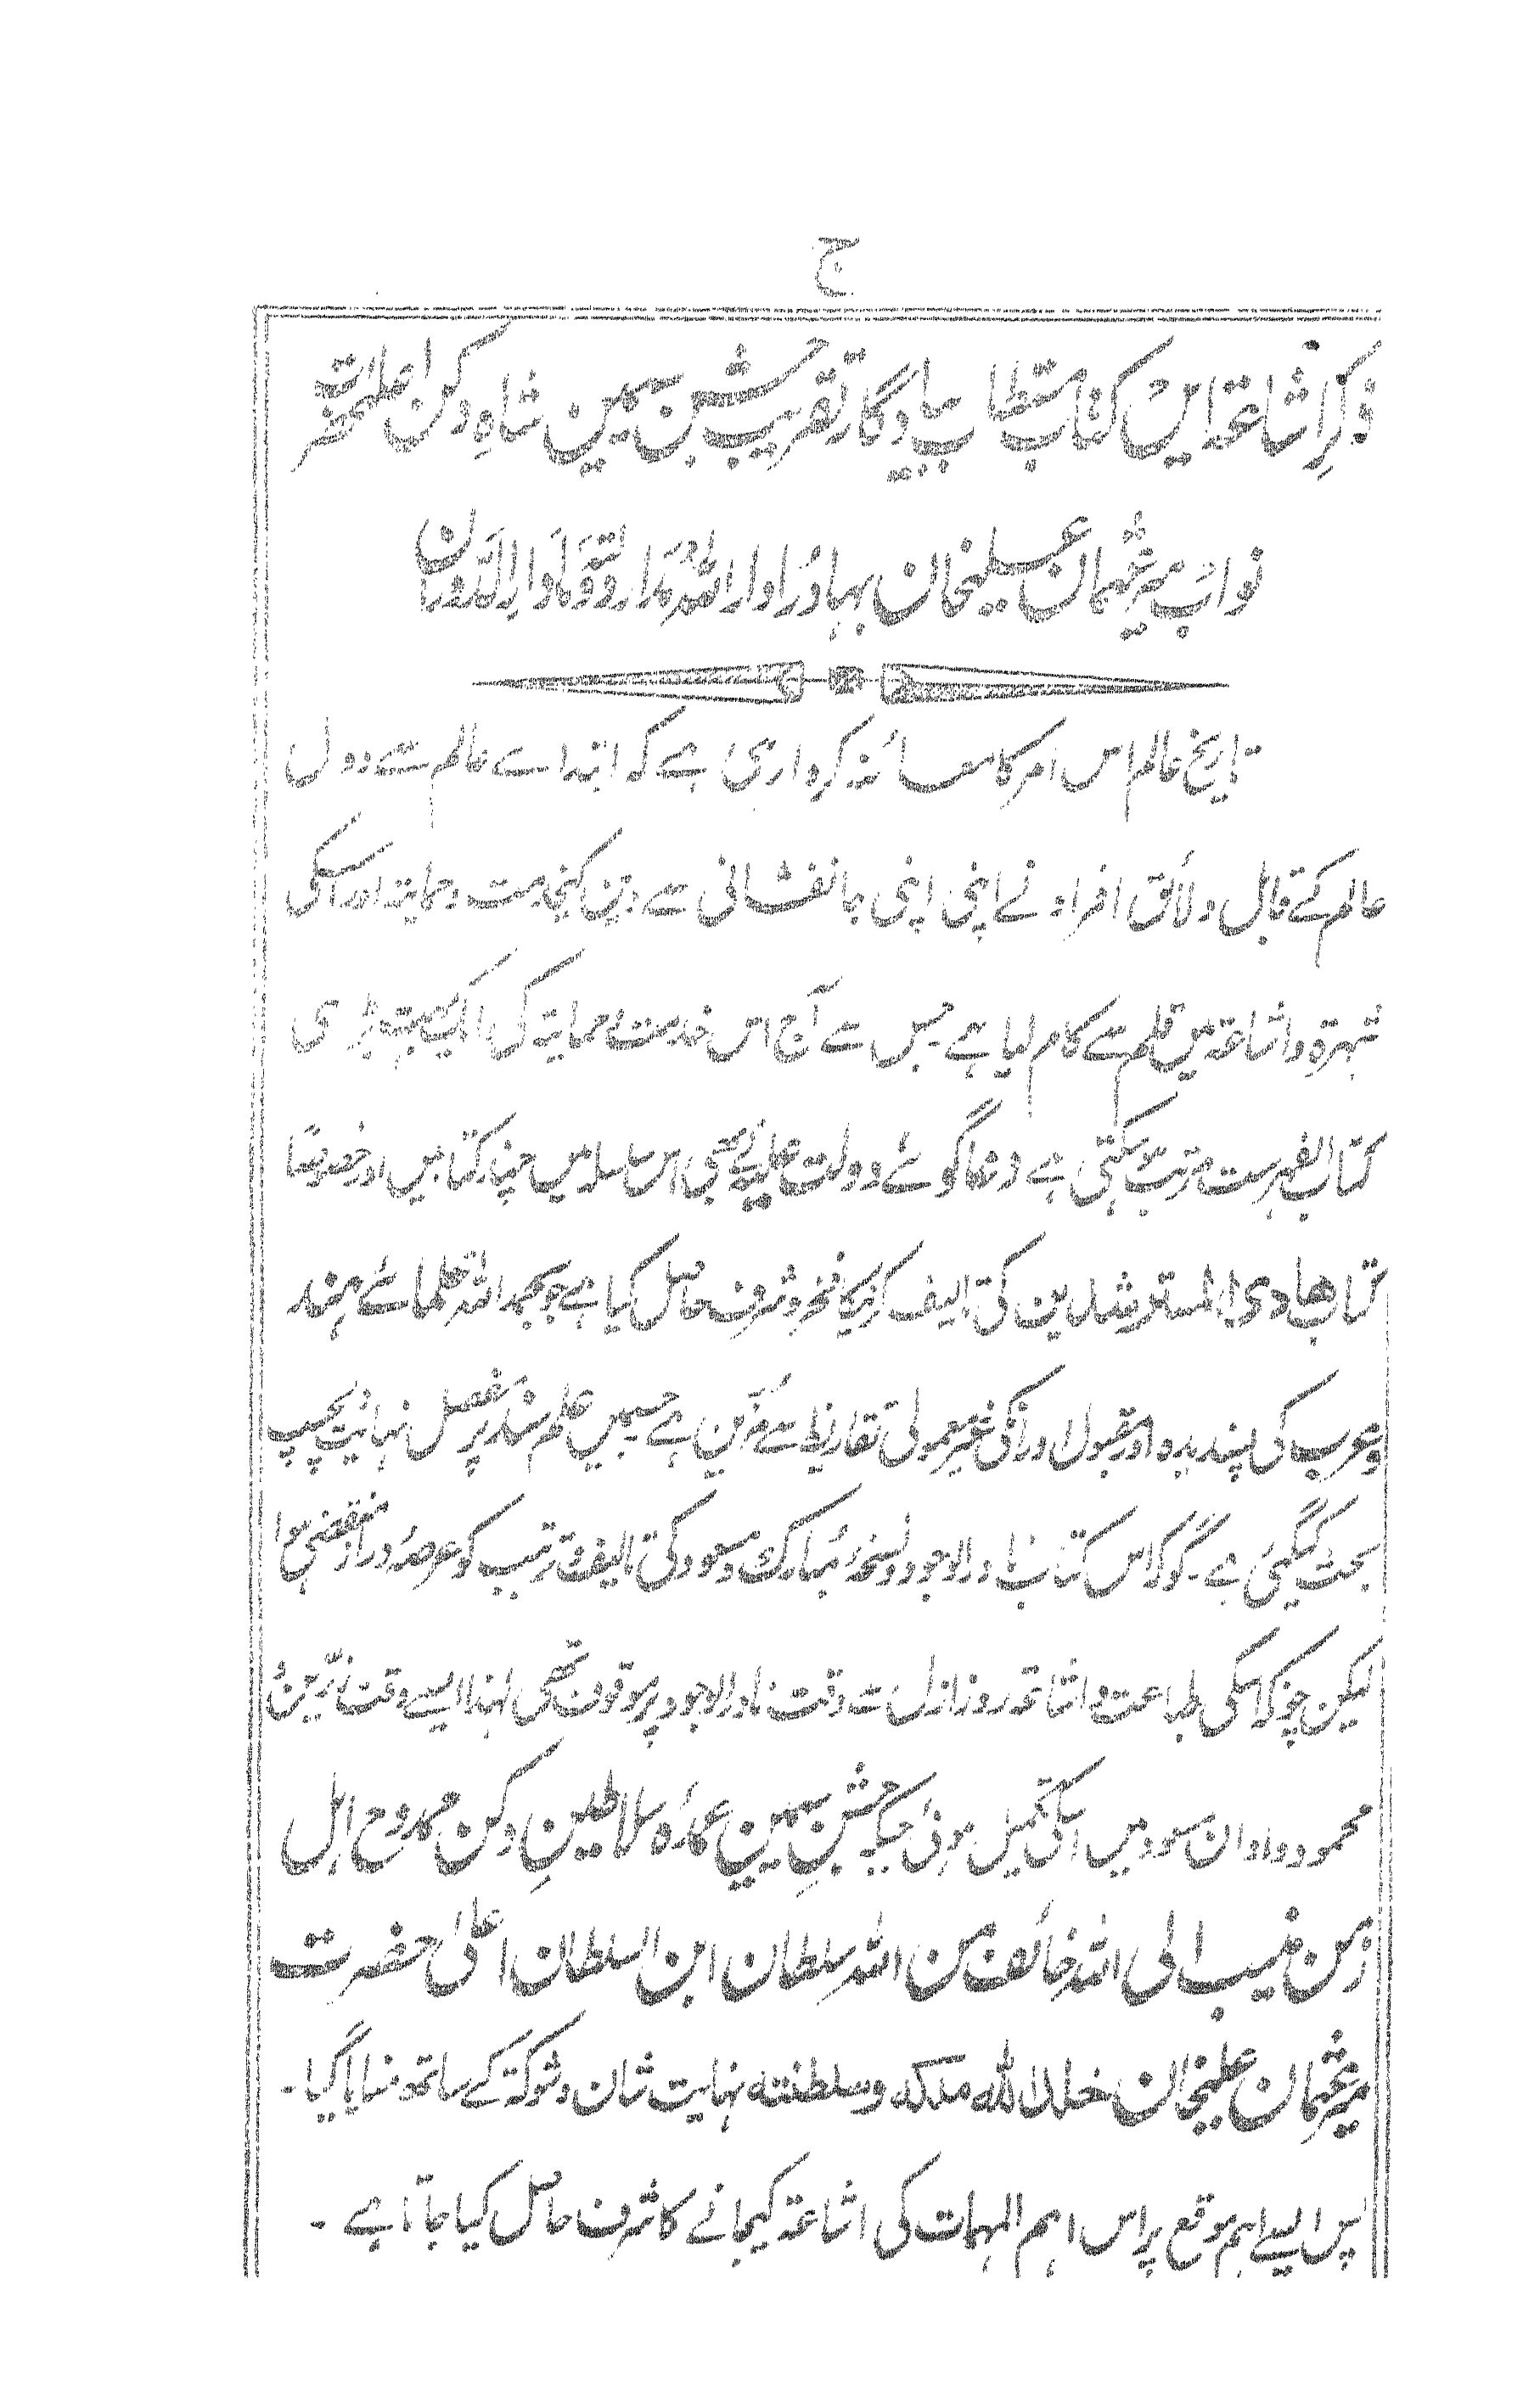 ج
ذکر اشاعۃ اس کتاب مستطاب بیادگار تقریب جشن سیمین شاہ دکن اعلیٰحضرت
نواب میر عثمان علیخان بہادر ادار اللہ مدار
تاریخ عالم اس امر کا معائنہ کروارہی ہے کہ ابتداے عالم سے دول
عالم کے قابل و لائق افراد نے اپنی اپنی جانفشانی سے دین کیخدمت و حمایتہ اور اسکی
شہرۃ و اشاعۃ میں قلم سے کام لیا ہے جس سے آج اس خدمت و حمایۃ کی ایک بہت بڑی
کتاب الفہرست مرتب ہوسکتی ہے دعاگوئے دولت علیہ نے بھی اس سلسلہ میں چند کتابیں اور خصوصًا
کتاب ھادی المسترشدین کی تالیف کرنیکا فخر و شرف حاصل کیا ہے جو بحمد اللہ علمائے ہند
و عرب کی پسندیدہ اور مقبول اور انکی غیر معمولی تقاریظ سے مزین ہے جسمیں علم سند پر مفصل نہایت دلچسپ
بحث کیگئی ہے۔ گو کہ اس کتاب نادر الوجود و نسخۂ مبارک و مسعود کی تالیف و ترتیب کو عرصۂ دراز منقضی ہوا
لیکن چونکہ اسکی طباعت و اشاعۃ روز ازل سے وقت نادر الوجود پر موقوف تھی لہٰذا ایسے وقت
محمود و اوان مسعود میں اسکی تکمیل ہوئی جبکہ جشنِ سیمین عمدۂ سلاطینِ دکن ممدوح اہل
زمن منیب الی اللہ خائف من اللہ سلطان ابن السلطان اعلیٰ حضرت
میر عثمان علیخان خلد اللہ ملکہ وسلطنتہ نہایت شان و شوکۃ کے ساتھ منایا گیا۔
پس ایسے اہم موقع پر اس اہم المہمات کی اشاعۃ کیجانے کا شرف حاصل کیا جاتا ہے۔